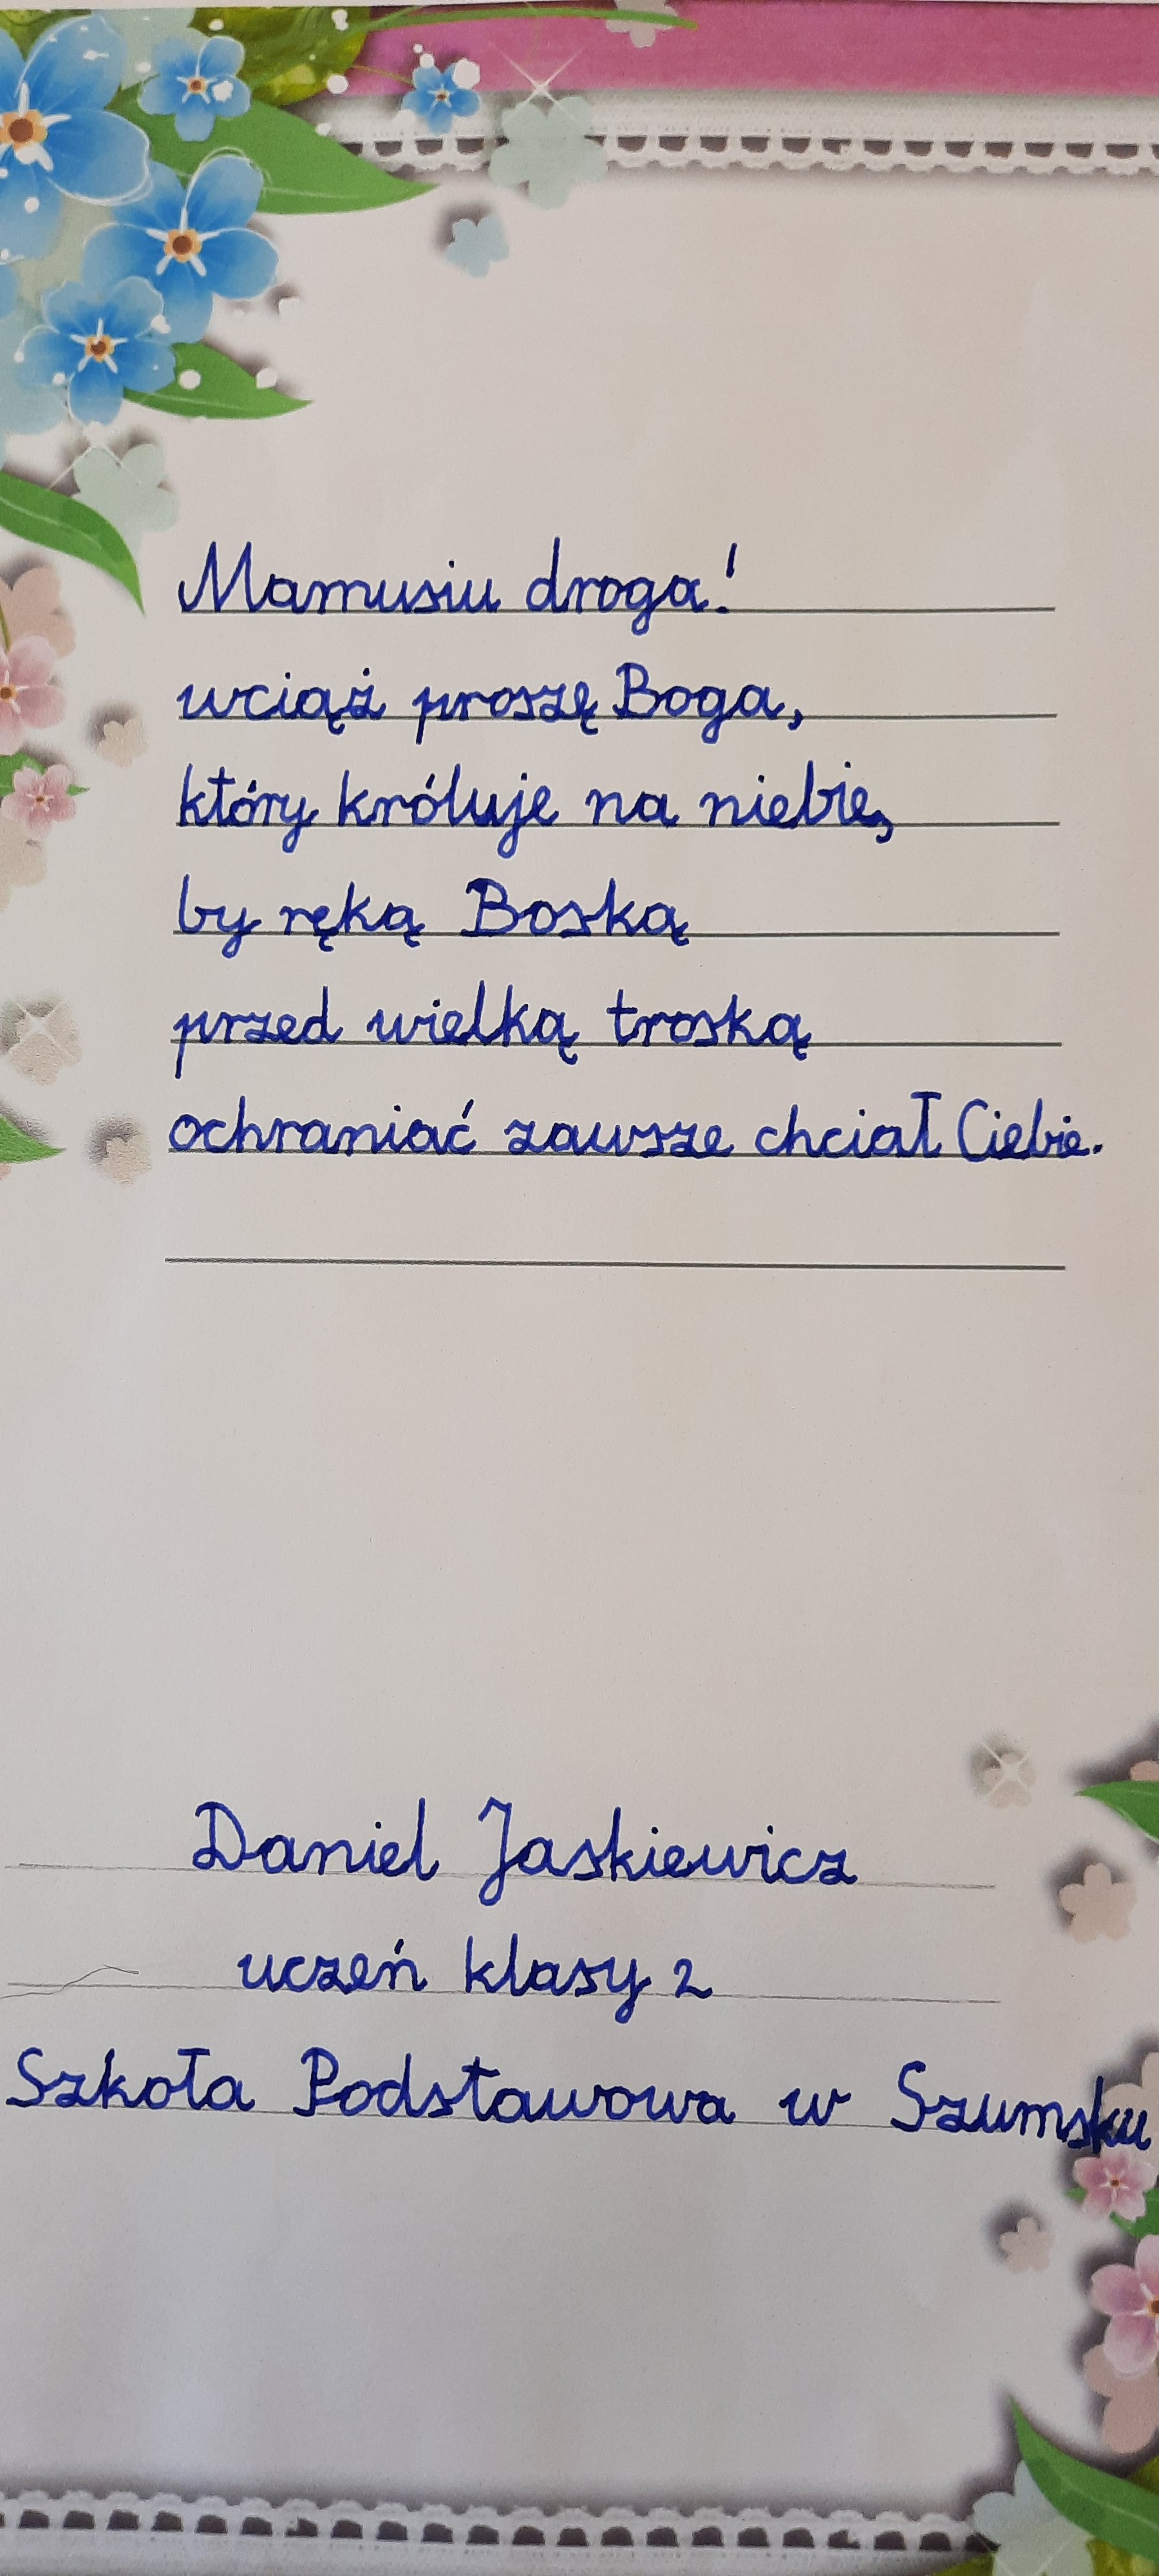 Mamusiu droga!
wciąż proszę Boga,
który króluje na niebie,
by ręką Boską
przed wielką troską
ochraniać zawsze chciał Ciebie.
Daniel Jaskiewicz
uczeń klasy 2
Szkoła Podstawowa w Szumsku